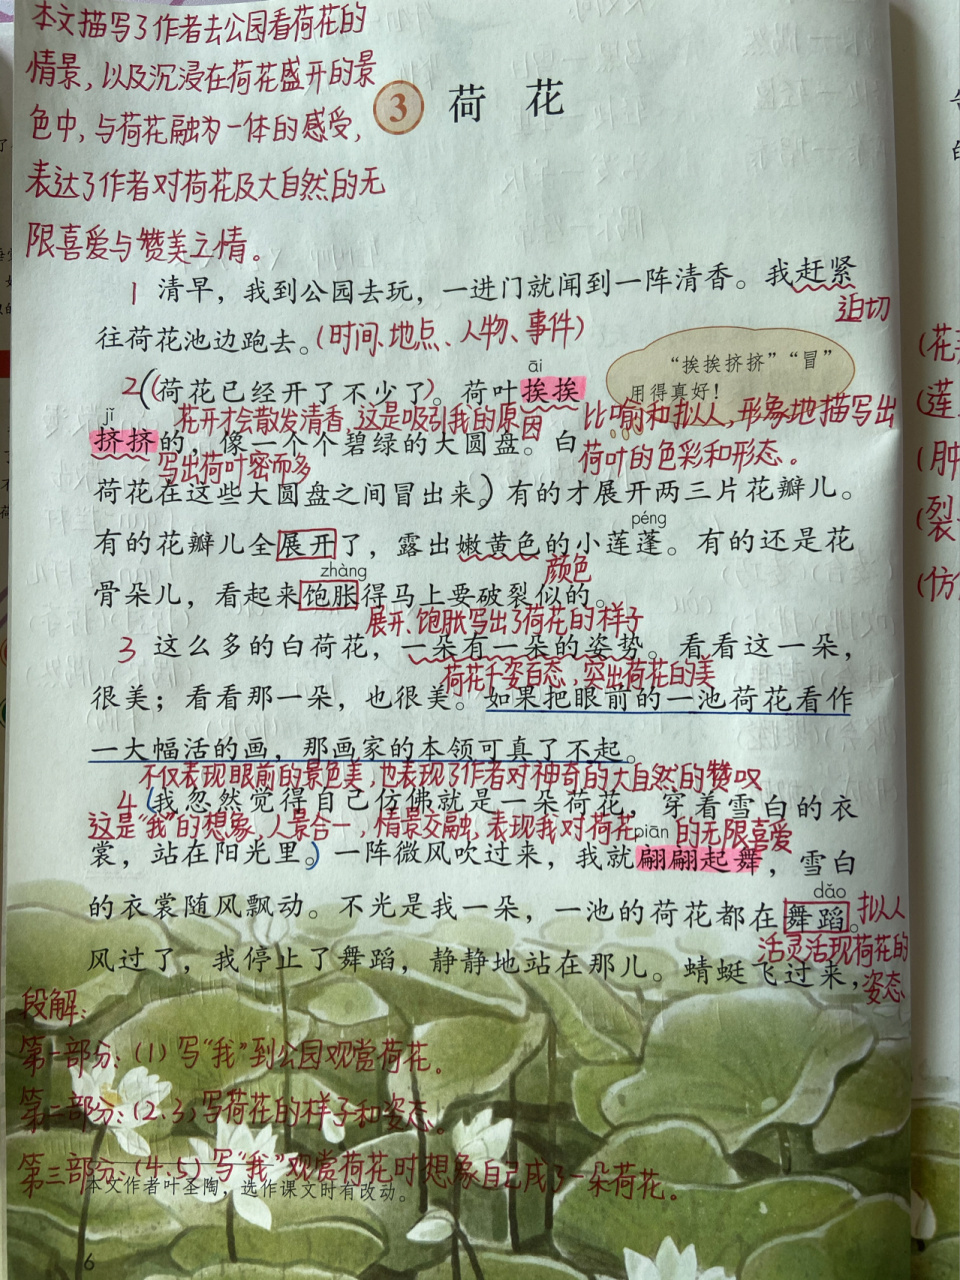 本文描写了作者去公园看荷花的
情景，以及沉浸在荷花盛开的景
色中，与荷花融为一体的感受，
表达了作者对荷花及大自然的无
限喜爱与赞美之情。
3 荷 花
1 清早，我到公园去玩，一进门就闻到一阵清香。我赶紧
迫切
往荷花池边跑去。(时间、地点、人物、事件)
“挨挨挤挤”“冒”
用得真好！
āi
2(荷花已经开了不少了)。荷叶挨挨
jǐ
花开才会散发清香，这是吸引我的原因
比喻和拟人，形象地描写出
挤挤的，像一个个碧绿的大圆盘。白
荷叶的色彩和形态。
写出荷叶密而多
荷花在这些大圆盘之间冒出来。)有的才展开两三片花瓣儿。
péng
有的花瓣儿全展开了，露出嫩黄色的小莲蓬。有的还是花
颜色
zhàng
骨朵儿，看起来饱胀得马上要破裂似的。
展开、饱胀写出了荷花的样子
3 这么多的白荷花，一朵有一朵的姿势。看看这一朵，
荷花千姿百态，突出荷花的美
很美；看看那一朵，也很美。如果把眼前的一池荷花看作
一大幅活的画，那画家的本领可真了不起。
不仅表现眼前的景色美，也表现了作者对神奇的大自然的赞叹
4(我忽然觉得自己仿佛就是一朵荷花，穿着雪白的衣
这是“我”的想象，人景合一，情景交融，表现我对荷花的无限喜爱
piān
裳，站在阳光里。)一阵微风吹过来，我就翩翩起舞，雪白
dǎo
的衣裳随风飘动。不光是我一朵，一池的荷花都在舞蹈。
拟人
活灵活现荷花的
姿态
风过了，我停止了舞蹈，静静地站在那儿。蜻蜓飞过来，
段解：
第一部分：(1) 写“我”到公园观赏荷花。
第二部分：(2.3) 写荷花的样子和姿态。
第三部分：(4.5) 写“我”观赏荷花时想象自己成了一朵荷花。
本文作者叶圣陶，选作课文时有改动。
6
(花
(莲
(肿
(裂
(仿